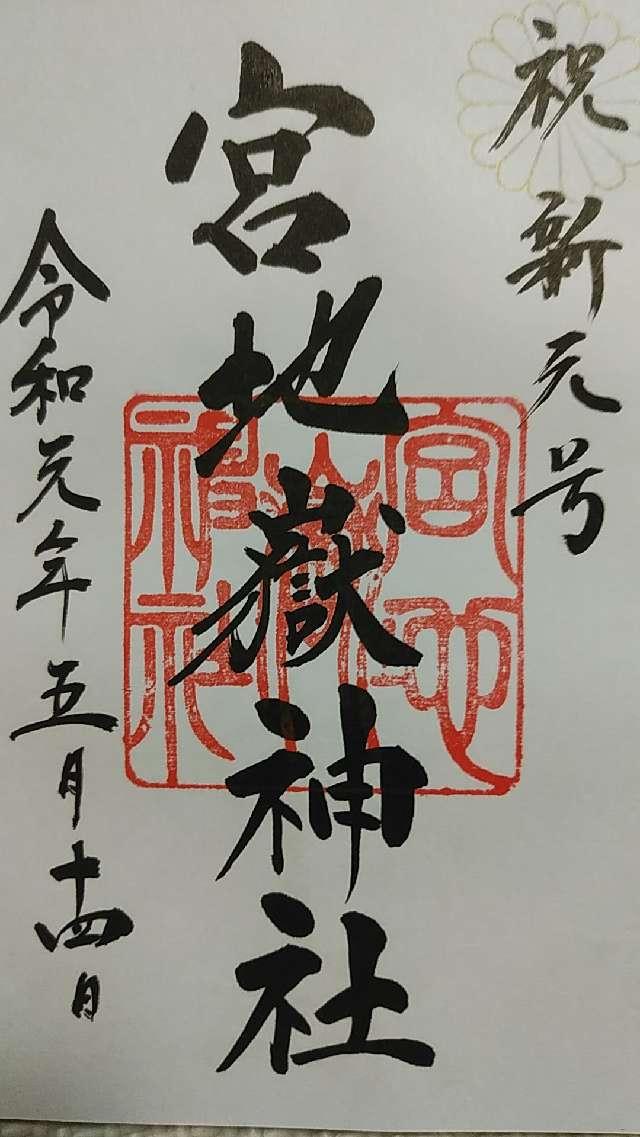 祝新元号
宮地嶽神社
宮地嶽神社
令和元年五月十四日